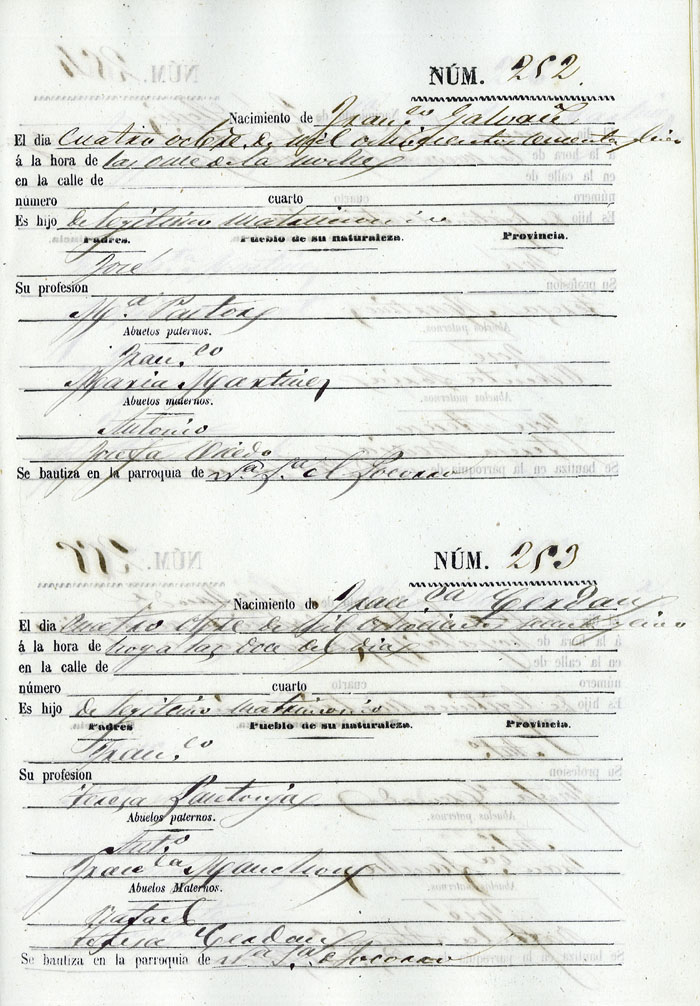 NÚM. 252
Nacimiento de Fran.co Galvañ
El dia cuatro octbre de mil ochocientos cuarenta y cinco
á la hora de las once de la noche
en la calle de
número cuarto
Es hijo de legitimo matrimonio
Padres. Pueblo de su naturaleza. Provincia.
José
Su profesion
M.a
Abuelos paternos.
Fran.co
Maria Martinez
Abuelos maternos.
Antonio
Josefa
Se bautiza en la parroquia de N.a S.a del Socorro
NÚM. 253
Nacimiento de Fran.ca Cerdan
El dia cuatro octbre de mil ochocientos cuarenta y cinco
á la hora de hoy a las doce del dia
en la calle de
número cuarto
Es hijo de legitimo matrimonio
Padres Pueblo de su naturaleza. Provincia.
Fran.co
Su profesion
Teresa Pantoja
Abuelos paternos.
Ant.o
Fran.ca Manchon
Abuelos Maternos.
Rafael
Teresa Cerdan
Se bautiza en la parroquia de N.a S.a de Socorro